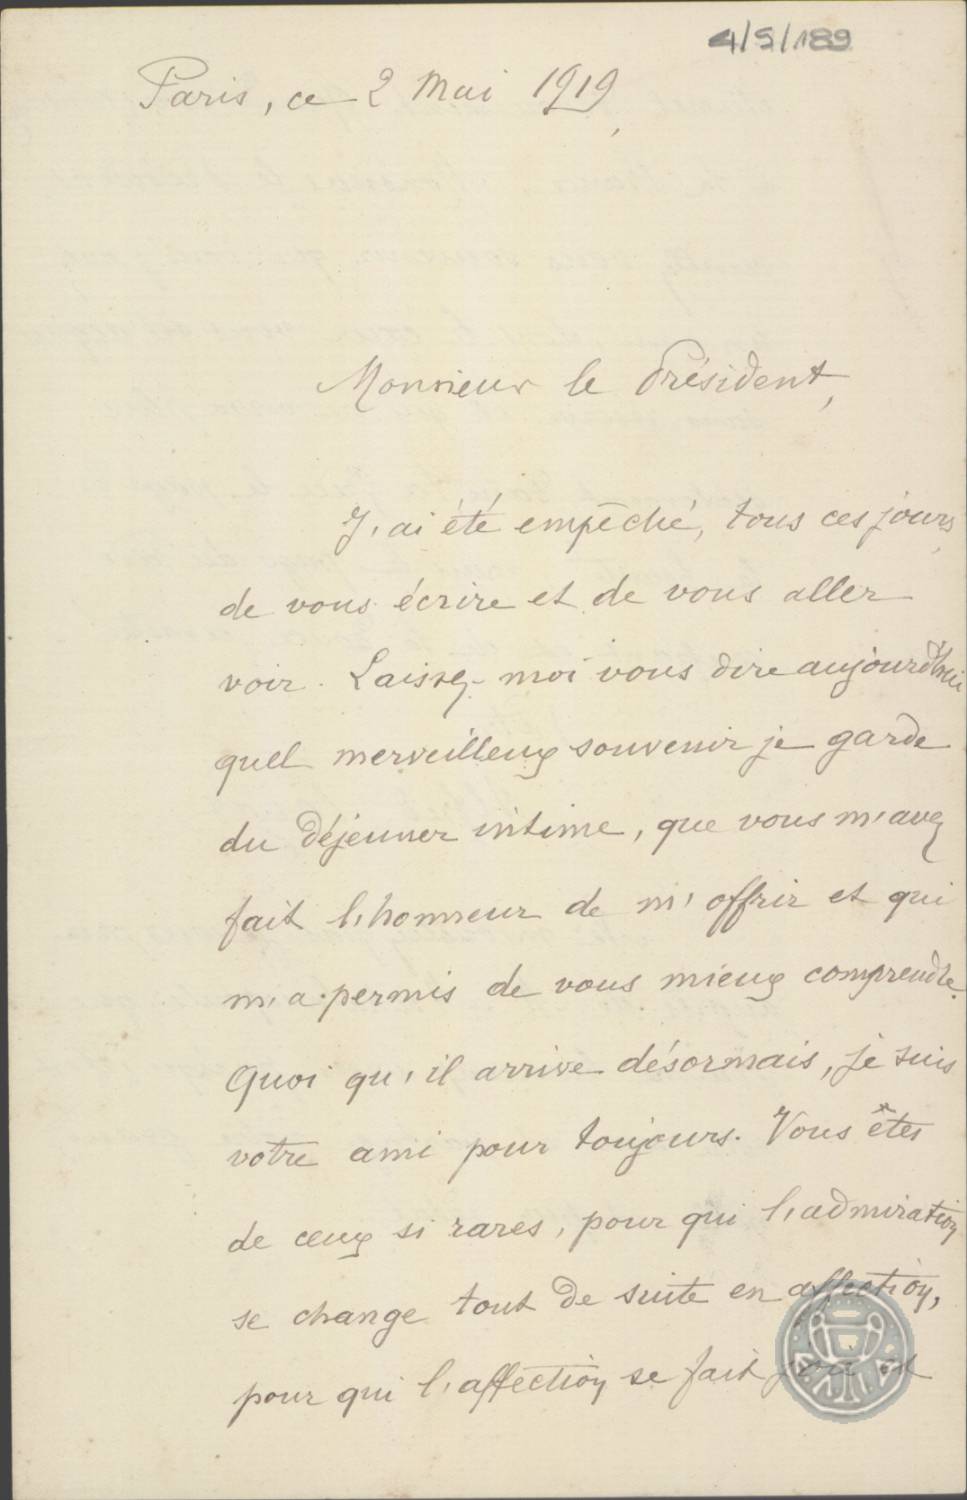 4/5/189
Paris, ce 2 Mai 1919,
Monsieur le Président,
J'ai été empêché, tous ces jours,
de vous écrire et de vous aller
voir. Laissez-moi vous dire aujourd'hui
quel merveilleux souvenir je garde
du déjeuner intime, que vous m'avez
fait l'honneur de m'offrir et qui
m'a permis de vous mieux comprendre.
Quoi qu'il arrive désormais, je suis
votre ami pour toujours. Vous êtes
de ceux si rares, pour qui l'admiration
se change tout de suite en affection,
pour qui l'affection se fait joie et